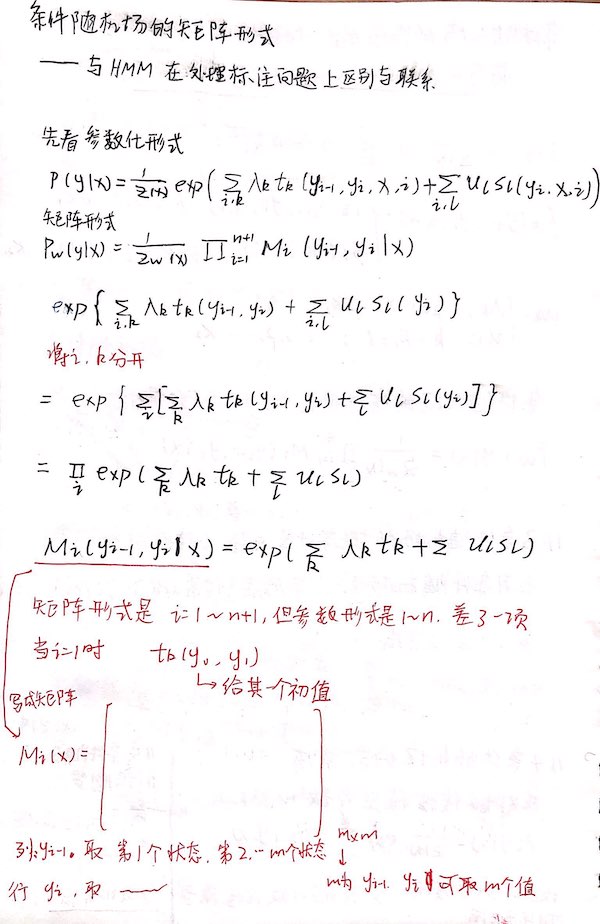 条件随机场的矩阵形式
—— 与HMM在处理标注问题上区别与联系
先看参数化形式
P(y|x) = 1/Z(x) exp(∑_{i,k} λ_k t_k(y_{i-1}, y_i, x, i) + ∑_{i,l} u_l s_l(y_i, x, i))
矩阵形式
P_w(y|x) = 1/Z_w(x) ∏_{i=1}^{n+1} M_i(y_{i-1}, y_i|x)
exp{∑_{i,k} λ_k t_k(y_{i-1}, y_i) + ∑_{i,l} u_l s_l(y_i)}
将i,k分开
= exp{∑_i[∑_k λ_k t_k(y_{i-1}, y_i) + ∑_l u_l s_l(y_i)]}
= ∏_i exp(∑_k λ_k t_k + ∑_l u_l s_l)
M_i(y_{i-1}, y_i|x) = exp(∑_k λ_k t_k + ∑ u_l s_l)
矩阵形式是 i=1~n+1, 但参数形式是1~n. 差了一项
当i=1时 t_k(y_0, y_1)
↳给其一个初值
写成矩阵
M_i(x) = [ ]
m×m
列: y_{i-1}。取 第1个状态. 第2...m个状态
行 y_i, 取 ——
m为 y_{i-1} y_i 可取m个值